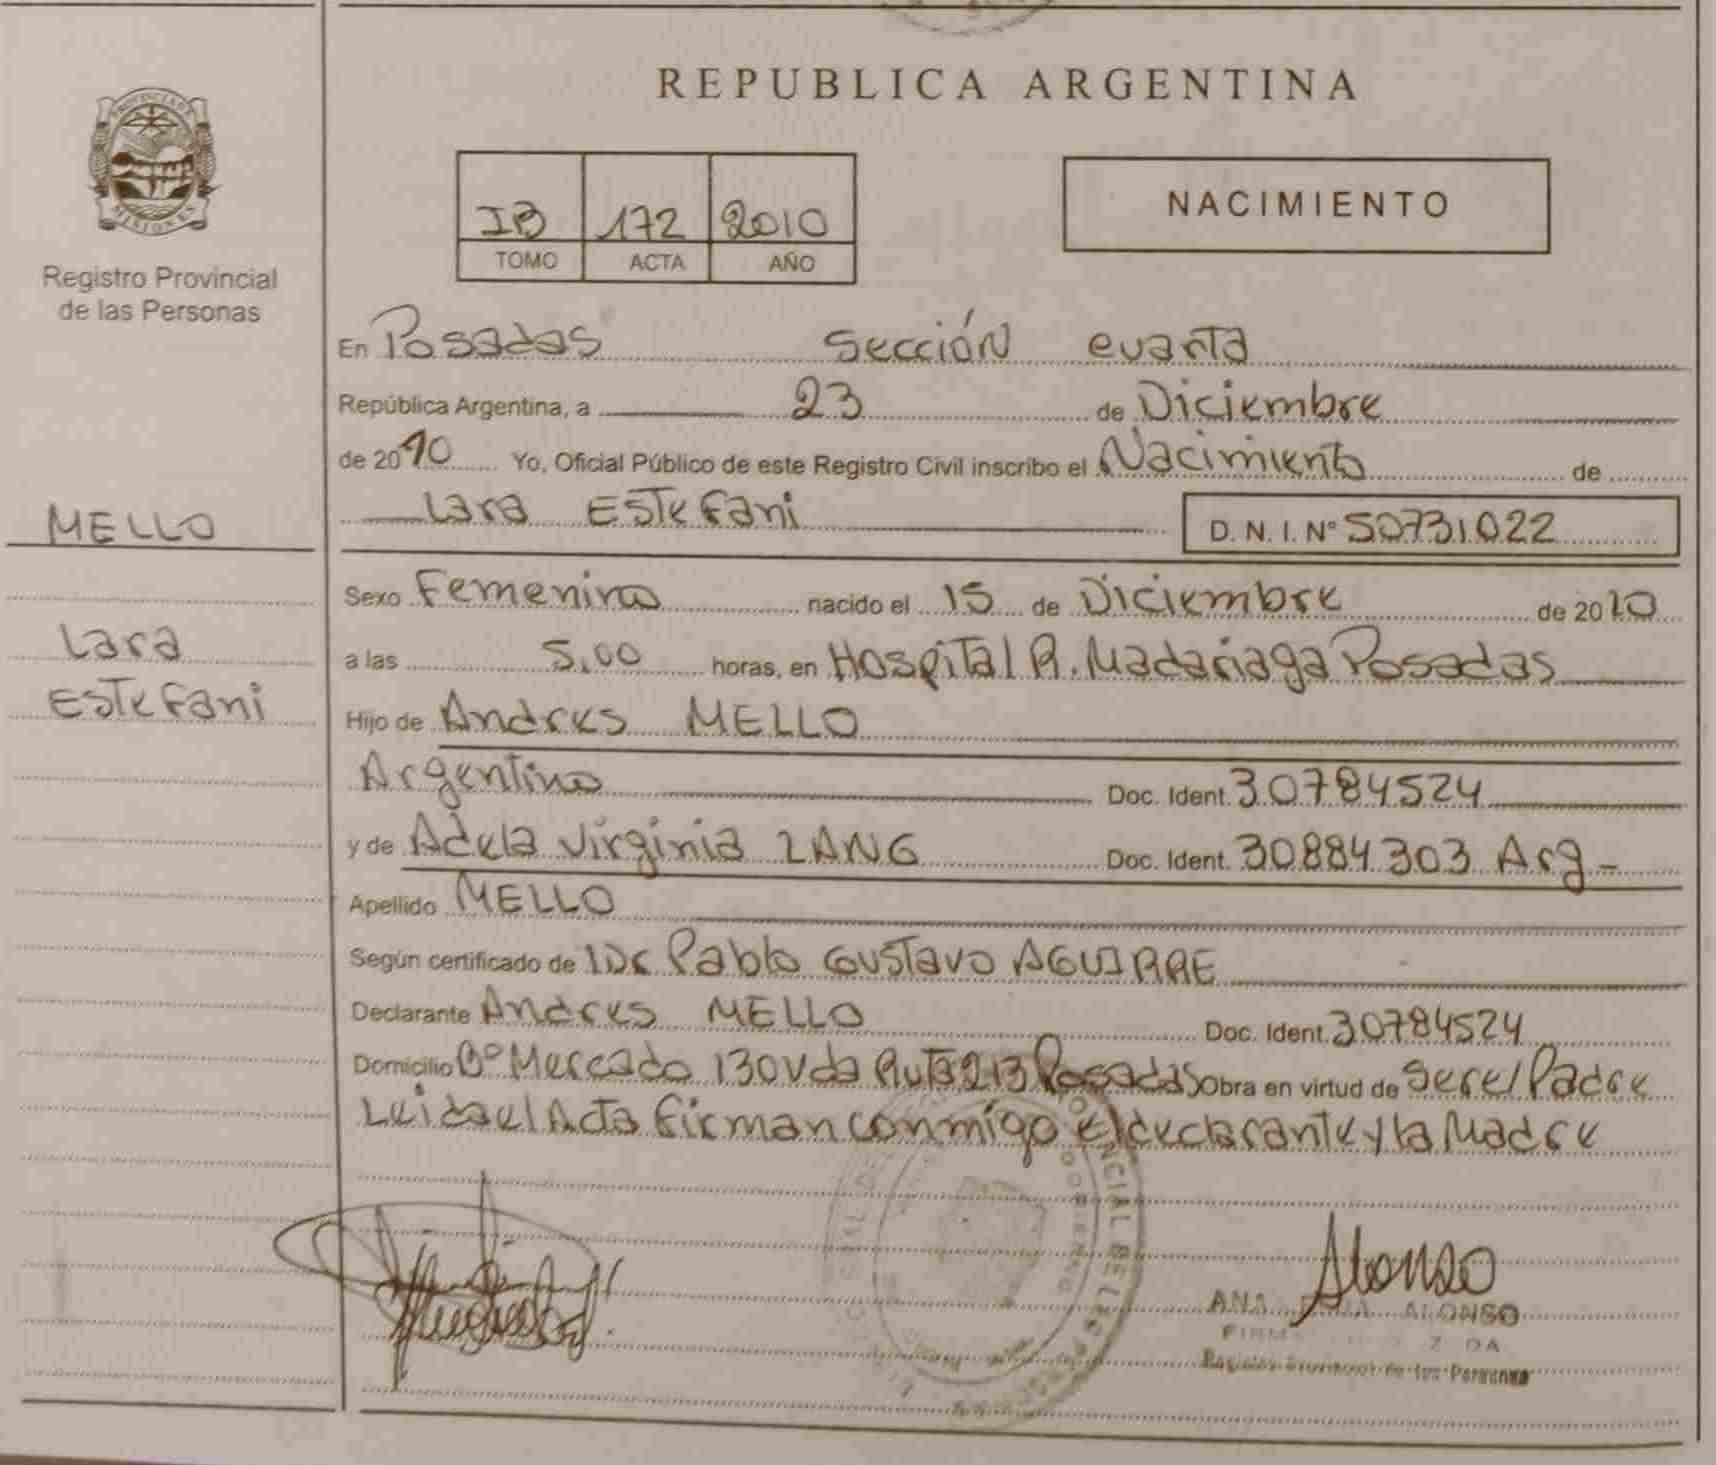 REPUBLICA ARGENTINA
PROVINCIA DE
MISIONES
Registro Provincial
de las Personas
IB 172 2010
TOMO ACTA AÑO
NACIMIENTO
En Posadas Sección cuarta
República Argentina, a 23 de Diciembre
de 2010 Yo, Oficial Público de este Registro Civil inscribo el Nacimiento de
Lara Estefani D. N. I. Nº 50731022
MELLO
Lara
Estefani
Sexo Femenino nacido el 15 de Diciembre de 2010
a las 5,00 horas, en Hospital R. Madariaga Posadas
Hijo de Andres MELLO
Argentino Doc. Ident. 30784524
y de Adela Virginia LANG Doc. Ident. 30884303 Arg-
Apellido MELLO
Según certificado de Dr Pablo Gustavo AGUIRRE
Declarante Andres MELLO Doc. Ident. 30784524
Domicilio Bº Mercado 130 vda Ruta 213 Posadas Obra en virtud de ser el Padre
Leida el Acta firman conmigo el declarante y la Madre
Alonso
ANA ALONSO
Registro Provincial de las Personas